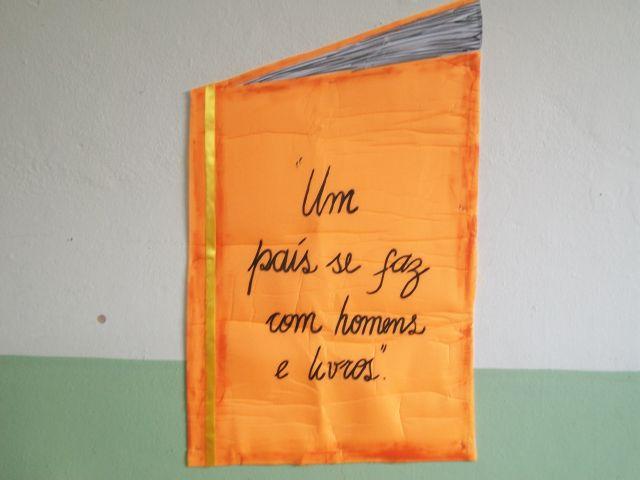 "Um
país se faz
com homens
e livros".